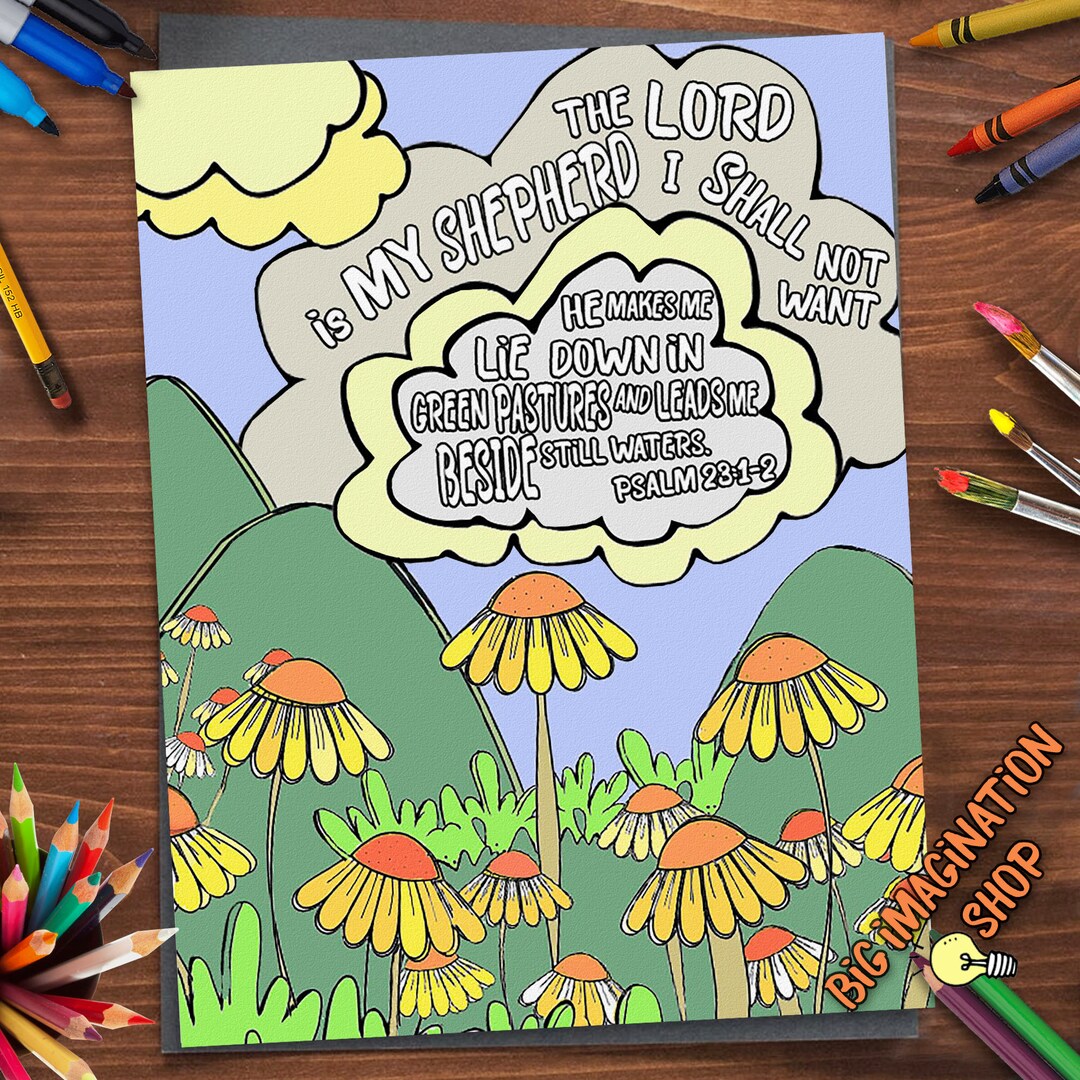 THE LORD
is MY SHEPHERD I SHALL NOT
WANT
HE MAKES ME
LiE DOWN iN
GREEN PASTURES AND LEADS ME
BESIDE STiLL WATERS.
PSALM 23:1-2
152 HB
BiG iMAGiNATiON
SHOP